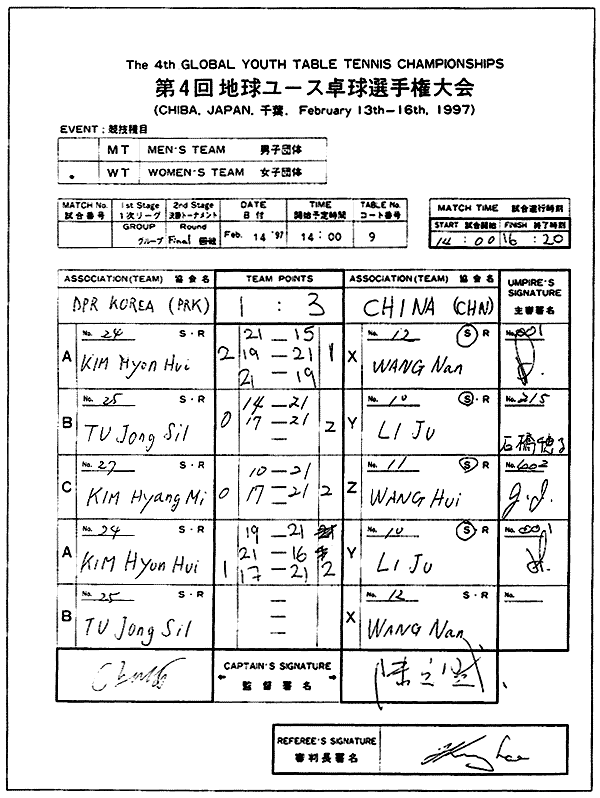 The 4th GLOBAL YOUTH TABLE TENNIS CHAMPIONSHIPS
第4回地球ユース卓球選手権大会
(CHIBA, JAPAN, 千葉, February 13th-16th, 1997)
EVENT : 競技種目
MT MEN'S TEAM 男子団体
• WT WOMEN'S TEAM 女子団体
MATCH No. 試合番号 1st Stage 1次リーグ 2nd Stage 決勝トーナメント DATE 日付 TIME 開始予定時間 TABLE No. コート番号
GROUP グループ Round Final Feb. 14 '97 14:00 9
MATCH TIME 試合進行時刻
START 試合開始 FINISH 終了時刻
14:00 16:20
ASSOCIATION (TEAM) 協会名 TEAM POINTS ASSOCIATION (TEAM) 協会名 UMPIRE'S SIGNATURE 主審署名
DPR KOREA (PRK) 1 : 3 CHINA (CHN)
A No. 24 S・R KIM Hyon Hui 2 21—15 19—21 21—19 1 X No. 12 S・R WANG Nan No. 001
B No. 25 S・R TU Jong Sil 0 14—21 17—21 — 2 Y No. 10 S・R LI Ju No. 215
C No. 27 S・R KIM Hyang Mi 0 10—21 17—21 — 2 Z No. 11 S・R WANG Hui No. 602
A No. 24 S・R KIM Hyon Hui 1 19—21 21—16 17—21 2 Y No. 10 S・R LI Ju No. 001
B No. 25 S・R TU Jong Sil — — — X No. 12 S・R WANG Nan No.
CAPTAIN'S SIGNATURE
監督署名
REFEREE'S SIGNATURE
審判長署名